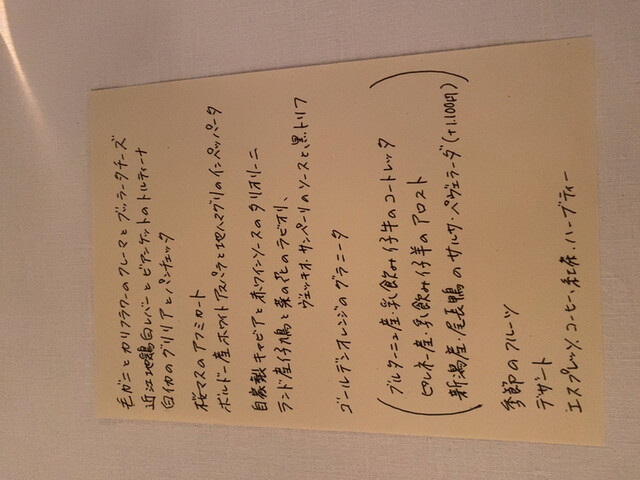 毛ガニとカリフラワーのクレーマとブッラータチーズ
近江地鶏白レバーとビアンケットのトルティーナ
白イカのグリリアとパンチェッタ
桜マスのアフミカート
ボルドー産ホワイトアスパラと地ハマグリのインペパータ
自家製キャビアと赤ワインソースのタリオリーニ
ランド産仔鳩と菜の花のラビオリ、
ヴェッキオ・サンペーリのソースと黒トリフ
ゴールデンオレンジのグラニータ
ブルターニュ産・乳飲み仔牛のコートレッタ
ピレネー産・乳飲み仔羊のアロスト
新潟産・尾長鴨のサルサ・ペヴェラーダ(+1,100円)
季節のフルーツ
デザート
エスプレッソ、コーヒー、紅茶、ハーブティー